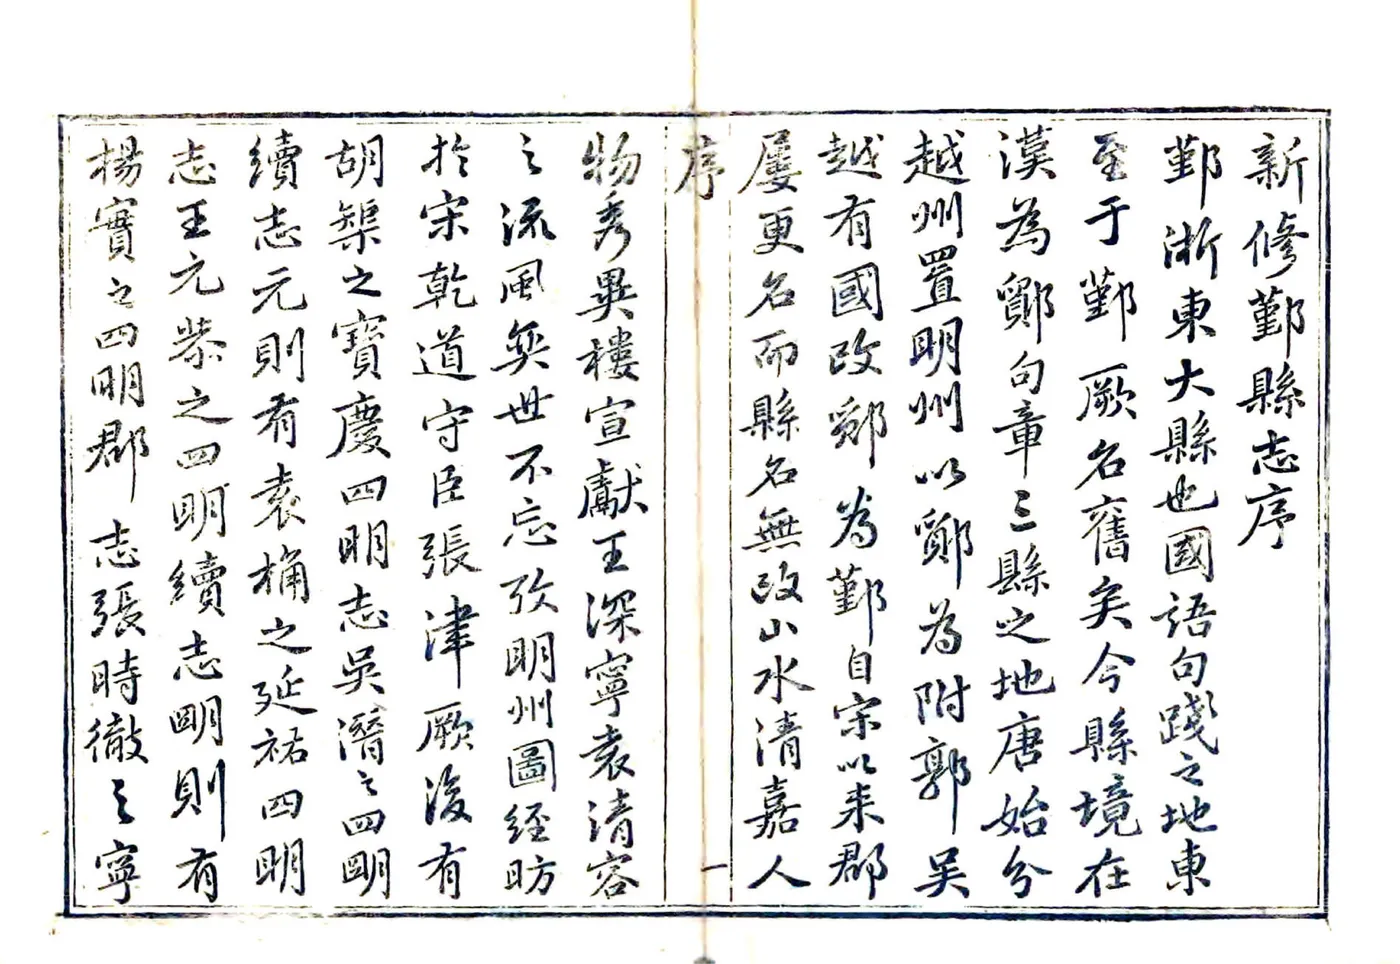 新修鄞縣志序
鄞浙東大縣也國語句踐之地東
至于鄞厥名舊矣今縣境在
漢為鄮句章三縣之地唐始分
越州置明州以鄮為附郭吳
越有國改鄮為鄞自宋以來郡
屢更名而縣名無改山水清嘉人
序
一
物秀異樓宣獻王深寧袁清容
之流風奕世不忘攷明州圖經昉
於宋乾道守臣張津厥後有
胡榘之寶慶四明志吳潛之四明
續志元則有袁桷之延祐四明
志王元恭之四明續志明則有
楊實之四明郡志張時徹之寧